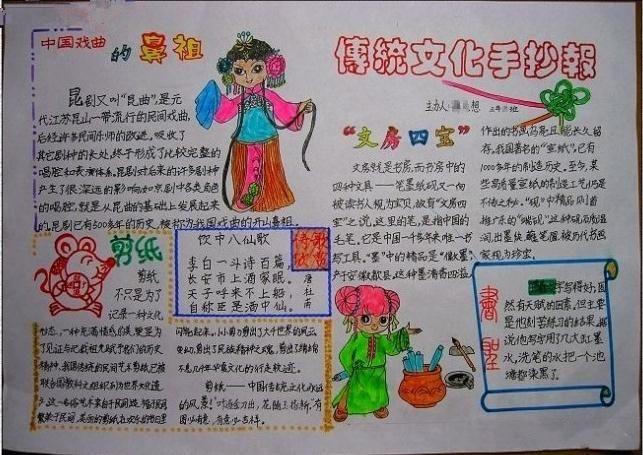 中国戏曲的鼻祖
昆剧又叫"昆曲",是元
代江苏昆山一带流行的民间戏曲,
后经许多民间乐师的改进,吸收了
其它剧种的长处,终于形成了比较完整的
唱腔和表演体系。昆剧对后来的许多剧种
产生了很深远的影响,如京剧中各类角色
的唱腔,就是从昆曲的基础上发展起来
的,昆剧已有500多年的历史,被称为我国戏曲的开山鼻祖。
傳統文化手抄報
主办人:
想
班
"文房四宝"
文房就是书房,而书房中的
四种文具——笔墨纸砚又一向
被读书人视为宝贝,故有"文房四
宝"之说。这里的笔,是指中国的
毛笔。它是中国一千多年来唯一书
写工具。"墨"中的精品是"徽墨",
产于安徽歙县。这种墨清香四溢,
作出的书画乌亮且能长久留
存。我国著名的"宣纸",已有
1000多年的制造历史。至今,某
些高质量宣纸的制造工艺仍是
不传之秘。"砚"中精品则首
推广东的"端砚"这种砚石质温
润,出墨快,蘸笔滑,被历代书画
家视为珍宝。
剪纸
剪纸
不只是为了
记录一种文化
饮中八仙歌
李白一斗诗百篇,
长安市上酒家眠。
天子呼来不上船,
自称臣是酒中仙。
唐
杜
甫
诗歌欣赏
闪亮起来。以小剪刀剪出了大千世界的风云
变幻,剪出了民族精神之魂,剪出了绵绵
不息几千年华夏文化的行走轨迹。
剪纸——中国传统文化永远
的风景!
書聖
字写得好,固
然有天赋的因素,但主要
是他刻苦练习的结果。据
说他写字用了几大缸墨
水,洗笔的水把一个池
塘都染黑了。